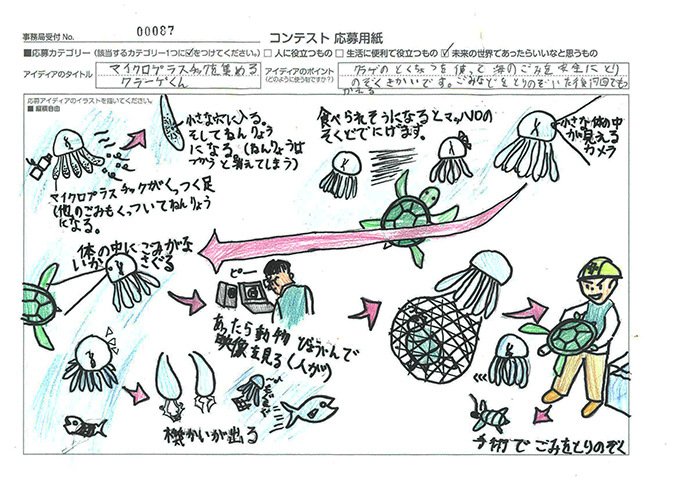 事務局受付 No. 00087
コンテスト 応募用紙
■応募カテゴリー(該当するカテゴリー1つに☑をつけてください。) □ 人に役立つもの □ 生活に便利で役立つもの ☑ 未来の世界であったらいいなと思うもの
アイディアのタイトル
マイクロプラスチックを集める
クラーゲくん
アイディアのポイント
(どのように使う物ですか?)
クラゲのとくちょうを使って海のごみを安全にとり
のぞくきかいです。ごみなどをとりのぞいた後何回でも
つかえる
応募アイディアのイラストを描いてください。
■ 縦横自由
小さなだ円に入る。
そしてねんりょう
になる。(ねんりょうは
つかうと消えてしまう)
マイクロプラスチックがくっつく足
(他のごみもくっついてねんりょう
になる。
食べられそうになるとマッハ10の
そくどでにげます。
小さな体の中
が見える
カメラ
体の中にごみがな
いかさぐる
ピー
あったら動物びょういんで
映像を見る(人が)
機かいが出る
手術でごみをとりのぞく